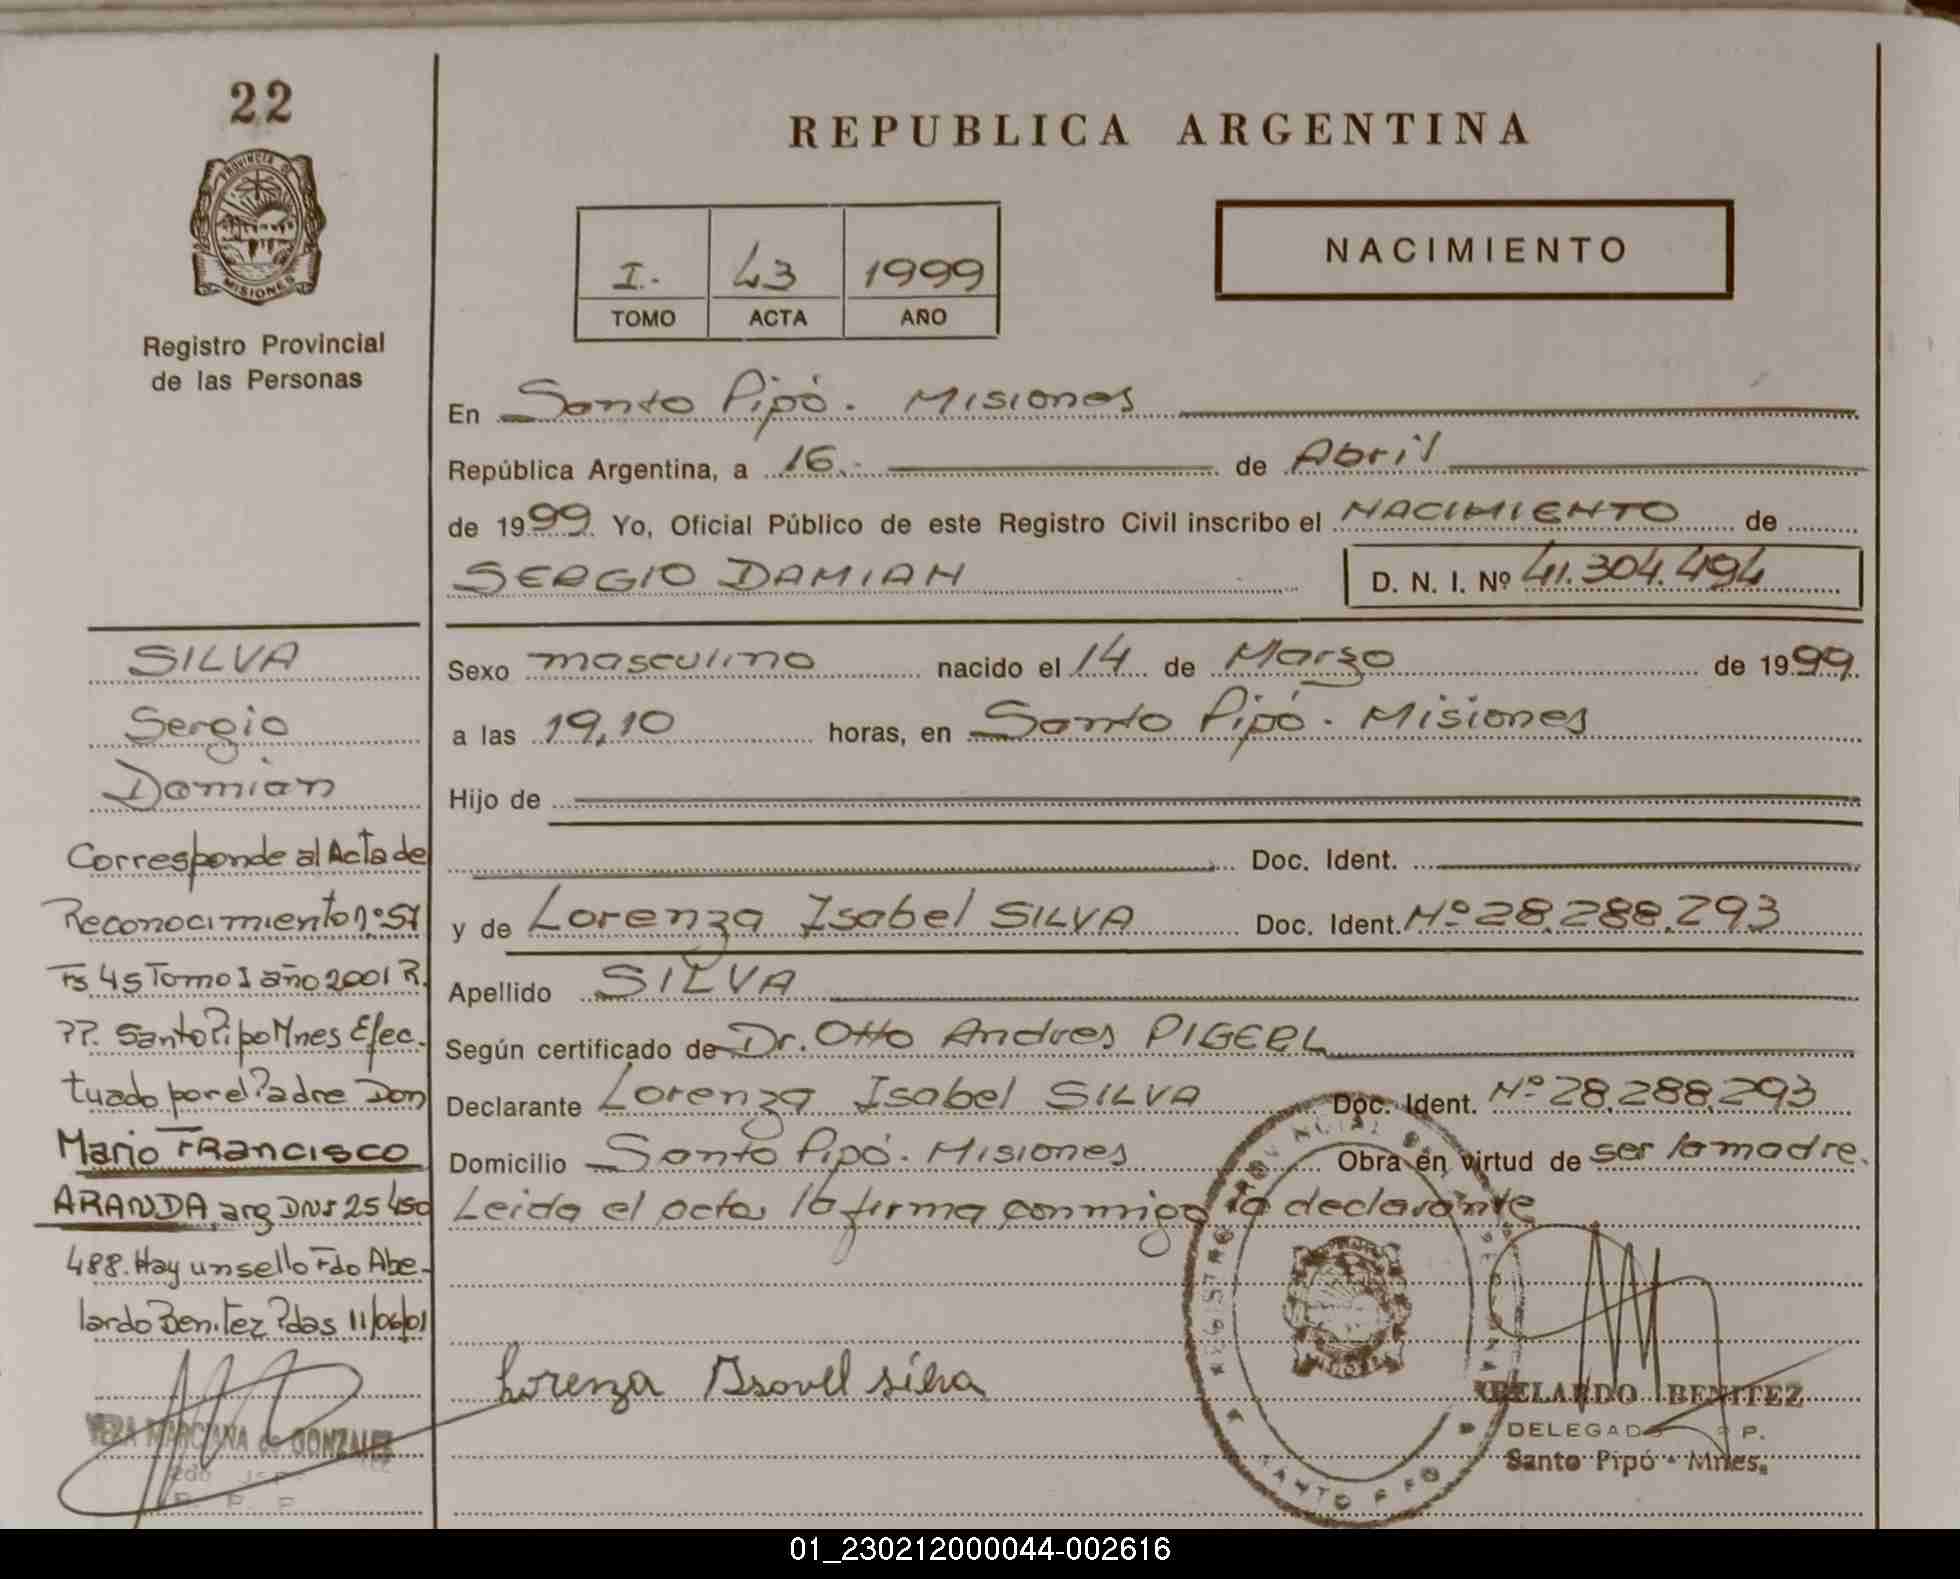 22
PROVINCIA DE
MISIONES
Registro Provincial
de las Personas
REPUBLICA ARGENTINA
I. 43 1999
TOMO ACTA AÑO
NACIMIENTO
En Santo Pipó. Misiones
República Argentina, a 16.- de Abril
de 1999 Yo, Oficial Público de este Registro Civil inscribo el NACIMIENTO de
SERGIO DAMIAN D. N. I. Nº 41.304.494
Sexo masculino nacido el 14 de Marzo de 1999
a las 19,10 horas, en Santo Pipó. Misiones
Hijo de
Doc. Ident.
y de Lorenza Isabel SILVA Doc. Ident. Nº 28.288.293
Apellido SILVA
Según certificado de Dr. Otto Andres PIGERL
Declarante Lorenza Isabel SILVA Doc. Ident. Nº 28.288.293
Domicilio Santo Pipó. Misiones Obra en virtud de ser la madre.
Leida el acta, la firma conmigo la declarante
Lorenza Isavel silva
SANTO PIPO
ABELARDO BENITEZ
DELEGADO R. P.
Santo Pipó - Mnes.
SILVA
Sergio
Damian
Corresponde al Acta de
Reconocimiento nº 57
Fs 45 Tomo I año 2001 R.
PP. Santo Pipo Mnes Efec-
tuado por el Padre Don
Mario FRancisco
ARANDA, arg DNI 25 450
488. Hay un sello Fdo Abe-
lardo Benitez Pdas 11/06/01
VERA MARCIANA de GONZALEZ
R. P. P.
01_230212000044-002616